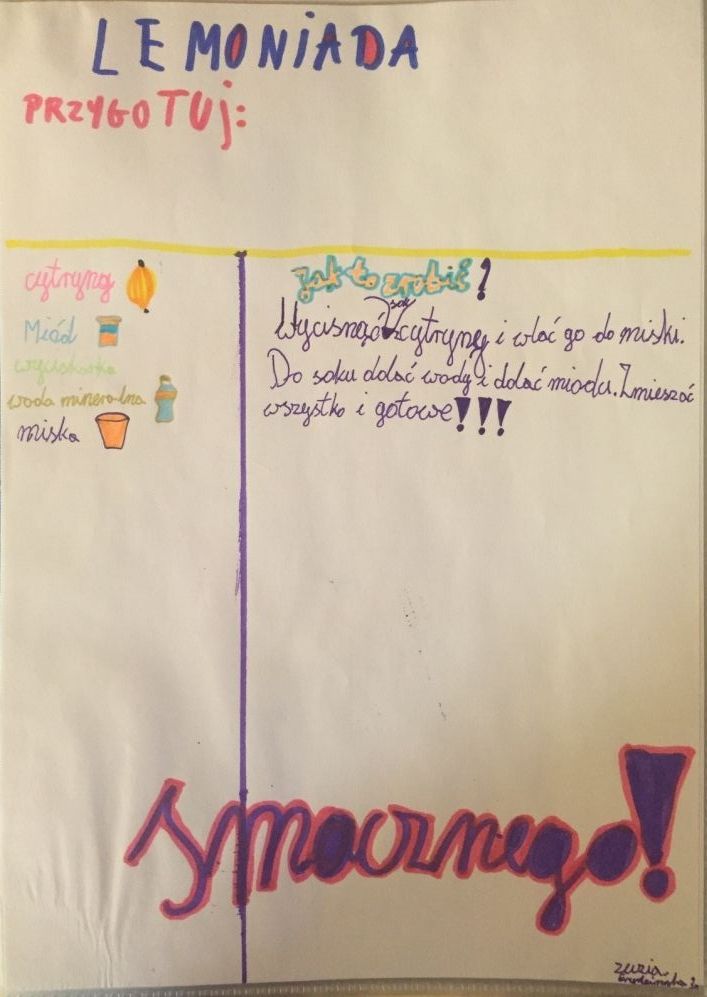 LEMONiADA
PRZYGOTUj:
cytryny
Miód
wyciskarka
woda mineralna
miska
jak to zrobić?
sok
Wycisnąć z cytryny i wlać go do miski.
Do soku dolać wody i dolać miodu. Zmieszać
wszystko i gotowe!!!
smacznego!
zuzia